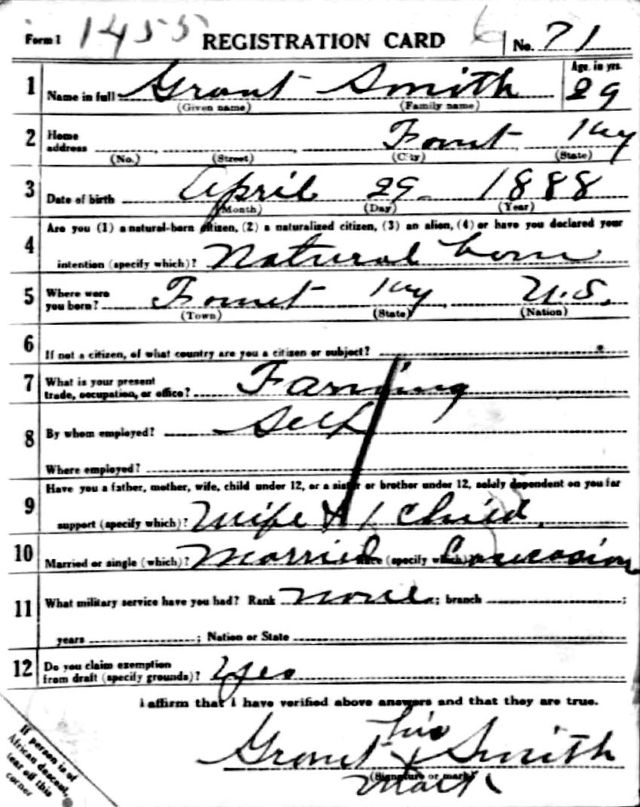 Form 1 1455 REGISTRATION CARD No. 71
1 Name in full Grant Smith Age, in yrs. 29
(Given name) (Family name)
2 Home address Fount Ky
(No.) (Street) (City) (State)
3 Date of birth April 29 1888
(Month) (Day) (Year)
4 Are you (1) a natural-born citizen, (2) a naturalized citizen, (3) an alien, (4) or have you declared your
intention (specify which)? Natural born
5 Where were you born? Fount Ky U.S.
(Town) (State) (Nation)
6 If not a citizen, of what country are you a citizen or subject?
7 What is your present trade, occupation, or office? Farming
8 By whom employed? Self
Where employed?
9 Have you a father, mother, wife, child under 12, or a sister or brother under 12, solely dependent on you for
support (specify which)? Wife & 1 Child
10 Married or single (which)? Married Race (specify which)? Caucasion
11 What military service have you had? Rank None; branch ;
years ; Nation or State
12 Do you claim exemption from draft (specify grounds)? Yes
I affirm that I have verified above answers and that they are true.
his
Grant X Smith
(Signature or mark)
Mark
If person is of
African descent,
tear off this
corner